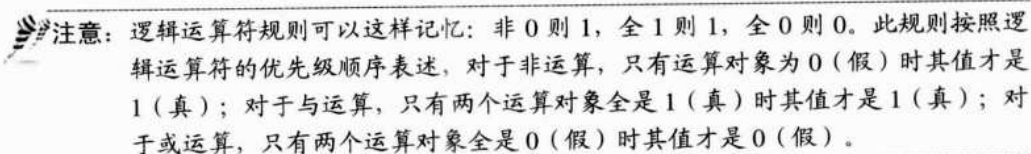 注意：逻辑运算符规则可以这样记忆：非 0 则 1，全 1 则 1，全 0 则 0。此规则按照逻
辑运算符的优先级顺序表述，对于非运算，只有运算对象为 0（假）时其值才是
1（真）；对于与运算，只有两个运算对象全是 1（真）时其值才是 1（真）；对
于或运算，只有两个运算对象全是 0（假）时其值才是 0（假）。